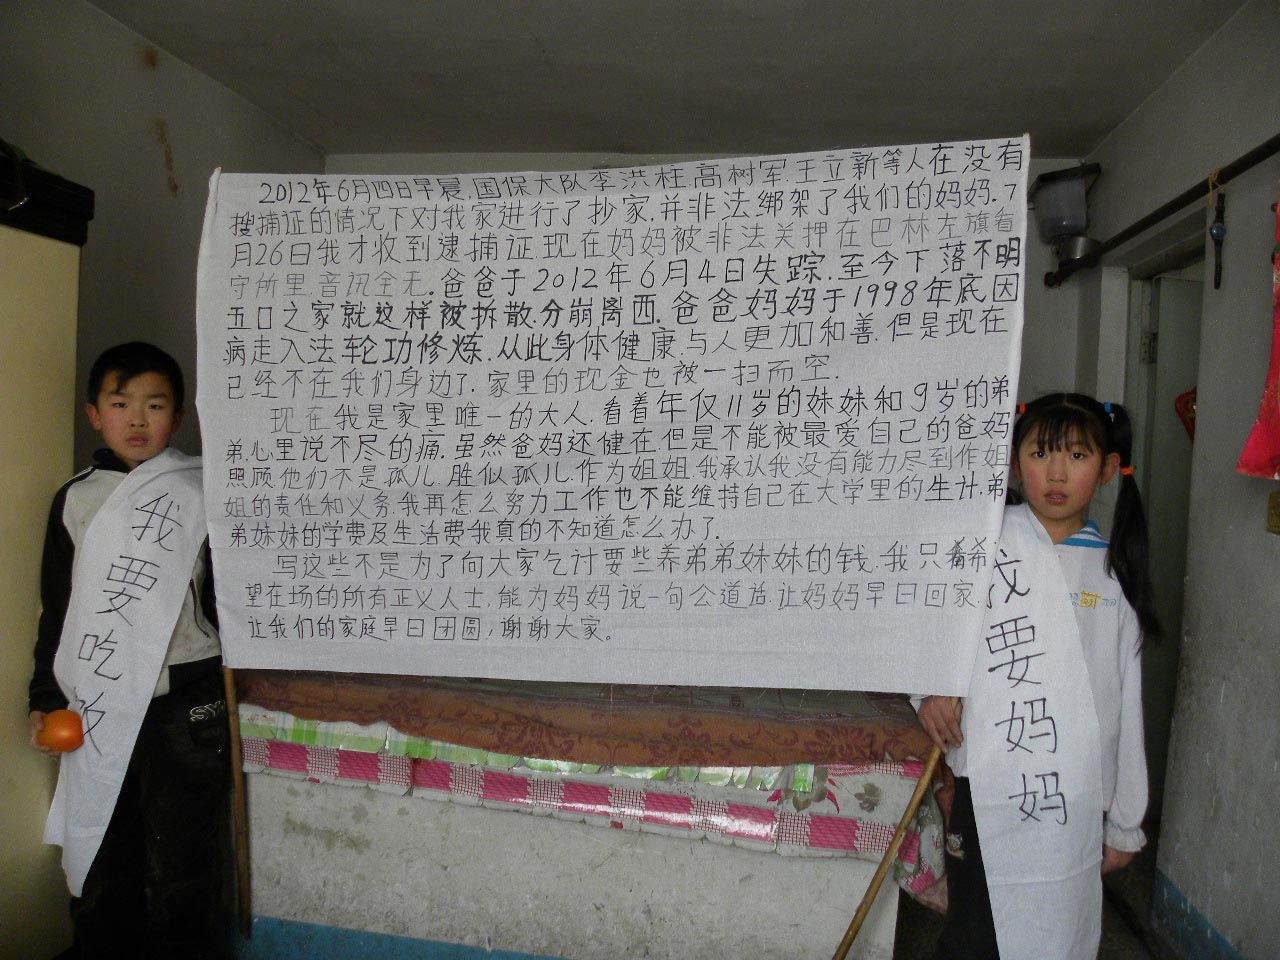 2012年6月四日早晨.国保大队李洪柱高树军王立新等人在没有
搜捕证的情况下对我家进行了抄家.并非法绑架了我们的妈妈.7
月26日我才收到逮捕证现在妈妈被非法关押在巴林左旗看
守所里.音讯全无.爸爸于2012年6月4日失踪.至今下落不明
五口之家就这样被拆散.分崩离西.爸爸妈妈于1998年底因
病走入法轮功修炼.从此身体健康.与人更加和善.但是现在
已经不在我们身边了.家里的现金也被一扫而空.
现在我是家里唯一的大人.看着年仅11岁的妹妹和9岁的弟
弟.心里说不尽的痛.虽然爸妈还健在.但是不能被最爱自己的爸妈
照顾.他们不是孤儿.胜似孤儿.作为姐姐.我承认我没有能力尽到作姐
姐的责任和义务.我再怎么努力工作也不能维持自己在大学里的生计.弟
弟妹妹的学费及生活费我真的不知道怎么办了.
写这些不是为了向大家乞讨要些养弟弟妹妹的钱.我只希
望在场的所有正义人士.能为妈妈说一句公道话.让妈妈早日回家.
让我们的家庭早日团圆,谢谢大家。
我要吃饭
我要妈妈